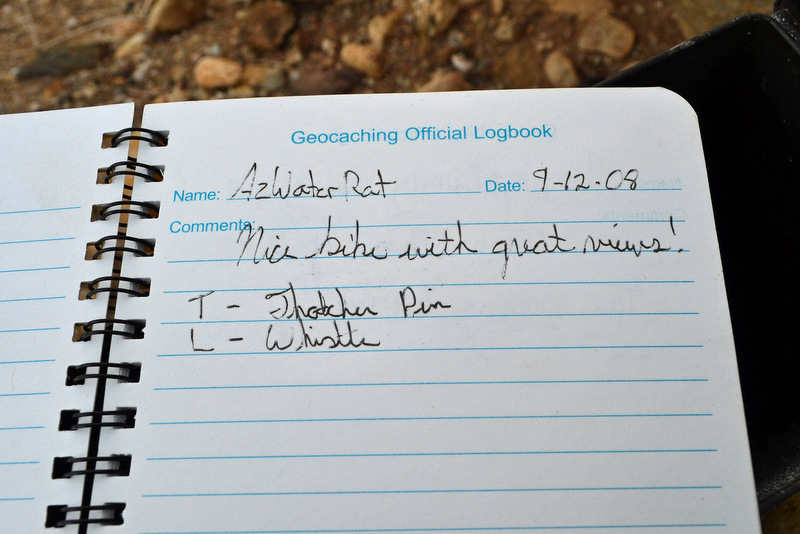 Geocaching Official Logbook
Name: AzWaterRat Date: 9-12-08
Comments:
Nice bike with great views!
T - Thatcher Pin
L - Whistle